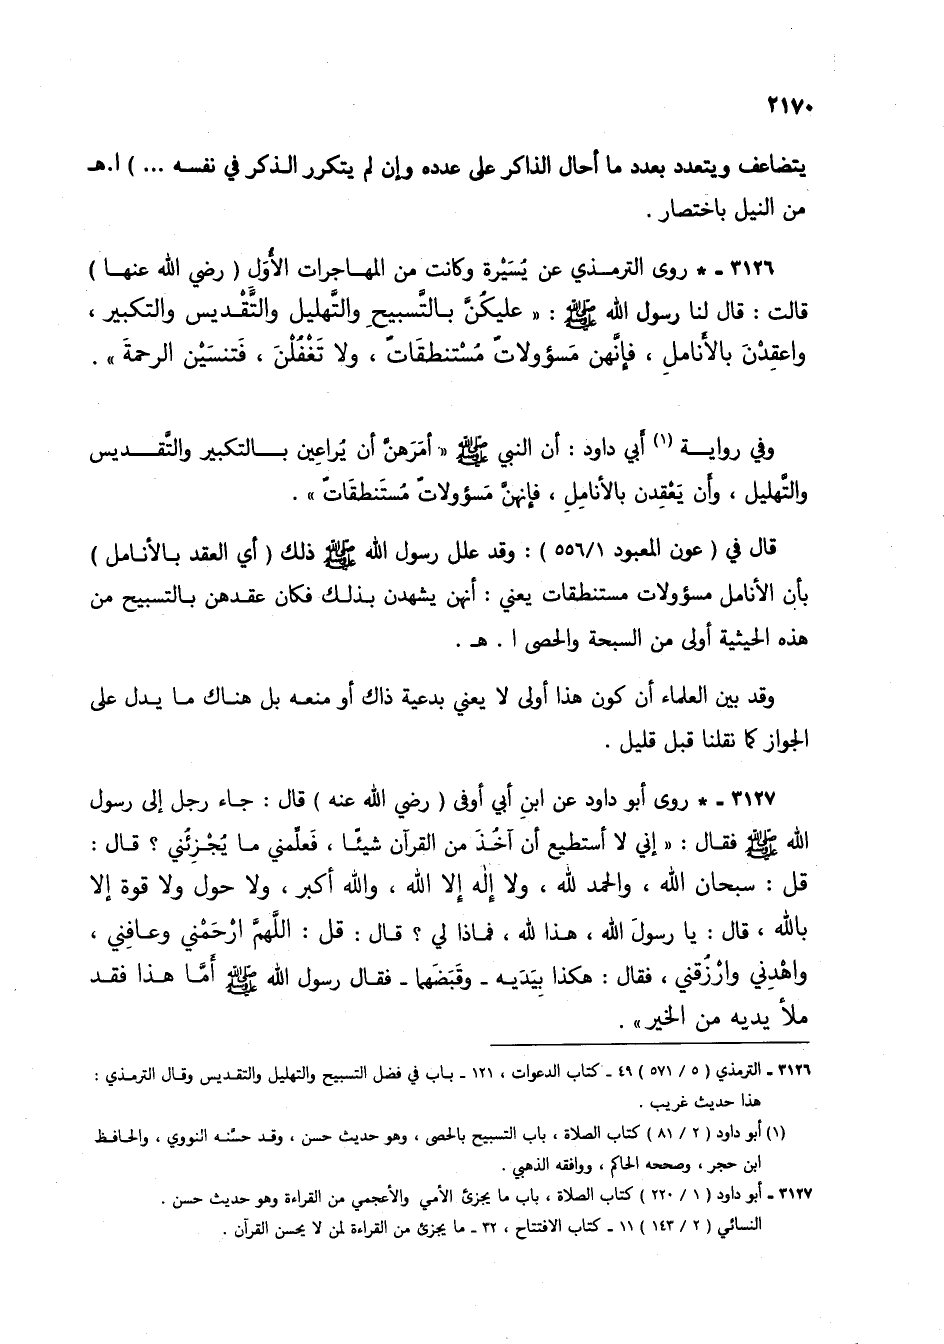 ٢١٧٠
يتضاعف ويتعدد بعدد ما أحال الذاكر على عدده وإن لم يتكرر الذكر في نفسه ... ) ا.هـ
من النيل باختصار .
٣١٢٦ - * روى الترمذي عن يُسَيْرة وكانت من المهاجرات الأُوَل ( رضي الله عنها )
قالت : قال لنا رسول الله ﷺ : « عليكُنَّ بالتَّسبيحِ والتَّهليل والتَّقْديس والتكبير ،
واعقِدْنَ بالأَناملِ ، فإنَّهن مَسؤولاتٌ مُسْتنطقَاتٌ ، ولا تَغْفُلْنَ ، فَتنسَيْن الرحمةَ » .
وفي رواية (١) أبي داود : أن النبي ﷺ « أمَرَهنَّ أن يُراعِين بالتكبير والتَّقديس
والتَّهليل ، وأن يَعْقِدن بالأنامِلِ ، فإنهنَّ مَسؤولاتٌ مُستَنطقَاتٌ » .
قال في ( عون المعبود ٥٥٦/١ ) : وقد علل رسول الله ﷺ ذلك ( أي العقد بالأنامل )
بأن الأنامل مسؤولات مستنطقات يعني : أنهن يشهدن بذلك فكان عقدهن بالتسبيح من
هذه الحيثية أولى من السبحة والحصى ا . هـ .
وقد بين العلماء أن كون هذا أولى لا يعني بدعية ذاك أو منعه بل هناك ما يدل على
الجواز كما نقلنا قبل قليل .
٣١٢٧ - * روى أبو داود عن ابنِ أبي أوفى ( رضي الله عنه ) قال : جاء رجل إلى رسول
الله ﷺ فقال : « إني لا أستطيع أن آخُذَ من القرآن شيئًا ، فَعلِّمني ما يُجْزِئُني ؟ قال :
قل : سبحان الله ، والحمد لله ، ولا إلٰه إلا الله ، والله أكبر ، ولا حول ولا قوة إلا
بالله ، قال : يا رسولَ الله ، هذا لله ، فماذا لي ؟ قال : قل : اللَّهمَّ ارْحَمْني وعافِني ،
واهْدِني وارْزُقني ، فقال : هكذا بِيَدَيه - وقَبَضَهما - فقال رسول الله ﷺ أَمَّا هذا فقد
ملأ يديه من الخير» .
٣١٢٦ - الترمذي ( ٥ / ٥٧١ ) ٤٩ - كتاب الدعوات ، ١٢١ - باب في فضل التسبيح والتهليل والتقديس وقال الترمذي :
هذا حديث غريب .
(١) أبو داود ( ٢ / ٨١ ) كتاب الصلاة ، باب التسبيح بالحصى ، وهو حديث حسن ، وقد حسَّنه النووي ، والحافظ
ابن حجر ، وصححه الحاكم ، ووافقه الذهبي .
٣١٢٧ - أبو داود ( ١ / ٢٢٠ ) كتاب الصلاة ، باب ما يجزئ الأمي والأعجمي من القراءة وهو حديث حسن .
النسائي ( ٢ / ١٤٣ ) ١١ - كتاب الافتتاح ، ٣٢ - ما يجزئ من القراءة لمن لا يحسن القرآن .